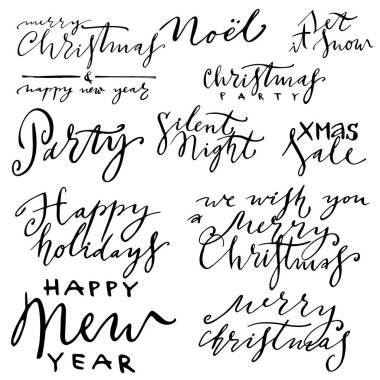 merry
Christmas
&
happy new year
Noël
Let
it Snow
Christmas
PARTY
Party
Silent
Night
XMAS
Sale
Happy
holidays
we wish you
a Merry
Christmas
HAPPY
New
YEAR
Merry
christmas